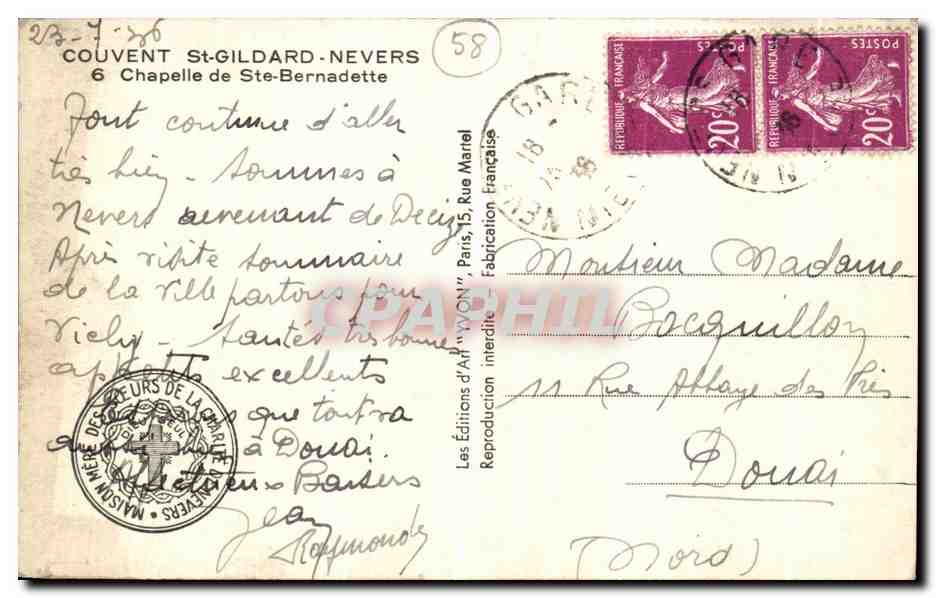 23-7-36
COUVENT St-GILDARD-NEVERS
6 Chapelle de Ste-Bernadette
58
Tout continue d'aller
très bien - Sommes à
Nevers de Decize
Après visite sommaire
de la ville partons pour
Vichy - Santés très bonnes
appétits excellents
que tout va
à Douai.
Affectueux Baisers
Jean
Raymonde
MAISON MÈRE DES SŒURS DE LA CHARITÉ DE NEVERS
Les Éditions d'Art "YVON", Paris, 15, Rue Martel
Reproduction interdite - Fabrication Française
REPUBLIQUE FRANÇAISE
POSTES
20c
REPUBLIQUE FRANÇAISE
POSTES
20c
GARE
18
36
Monsieur Madame
Bocquillon
11 Rue Abbaye des Prés
Douai
(Nord)
CPAPHIL